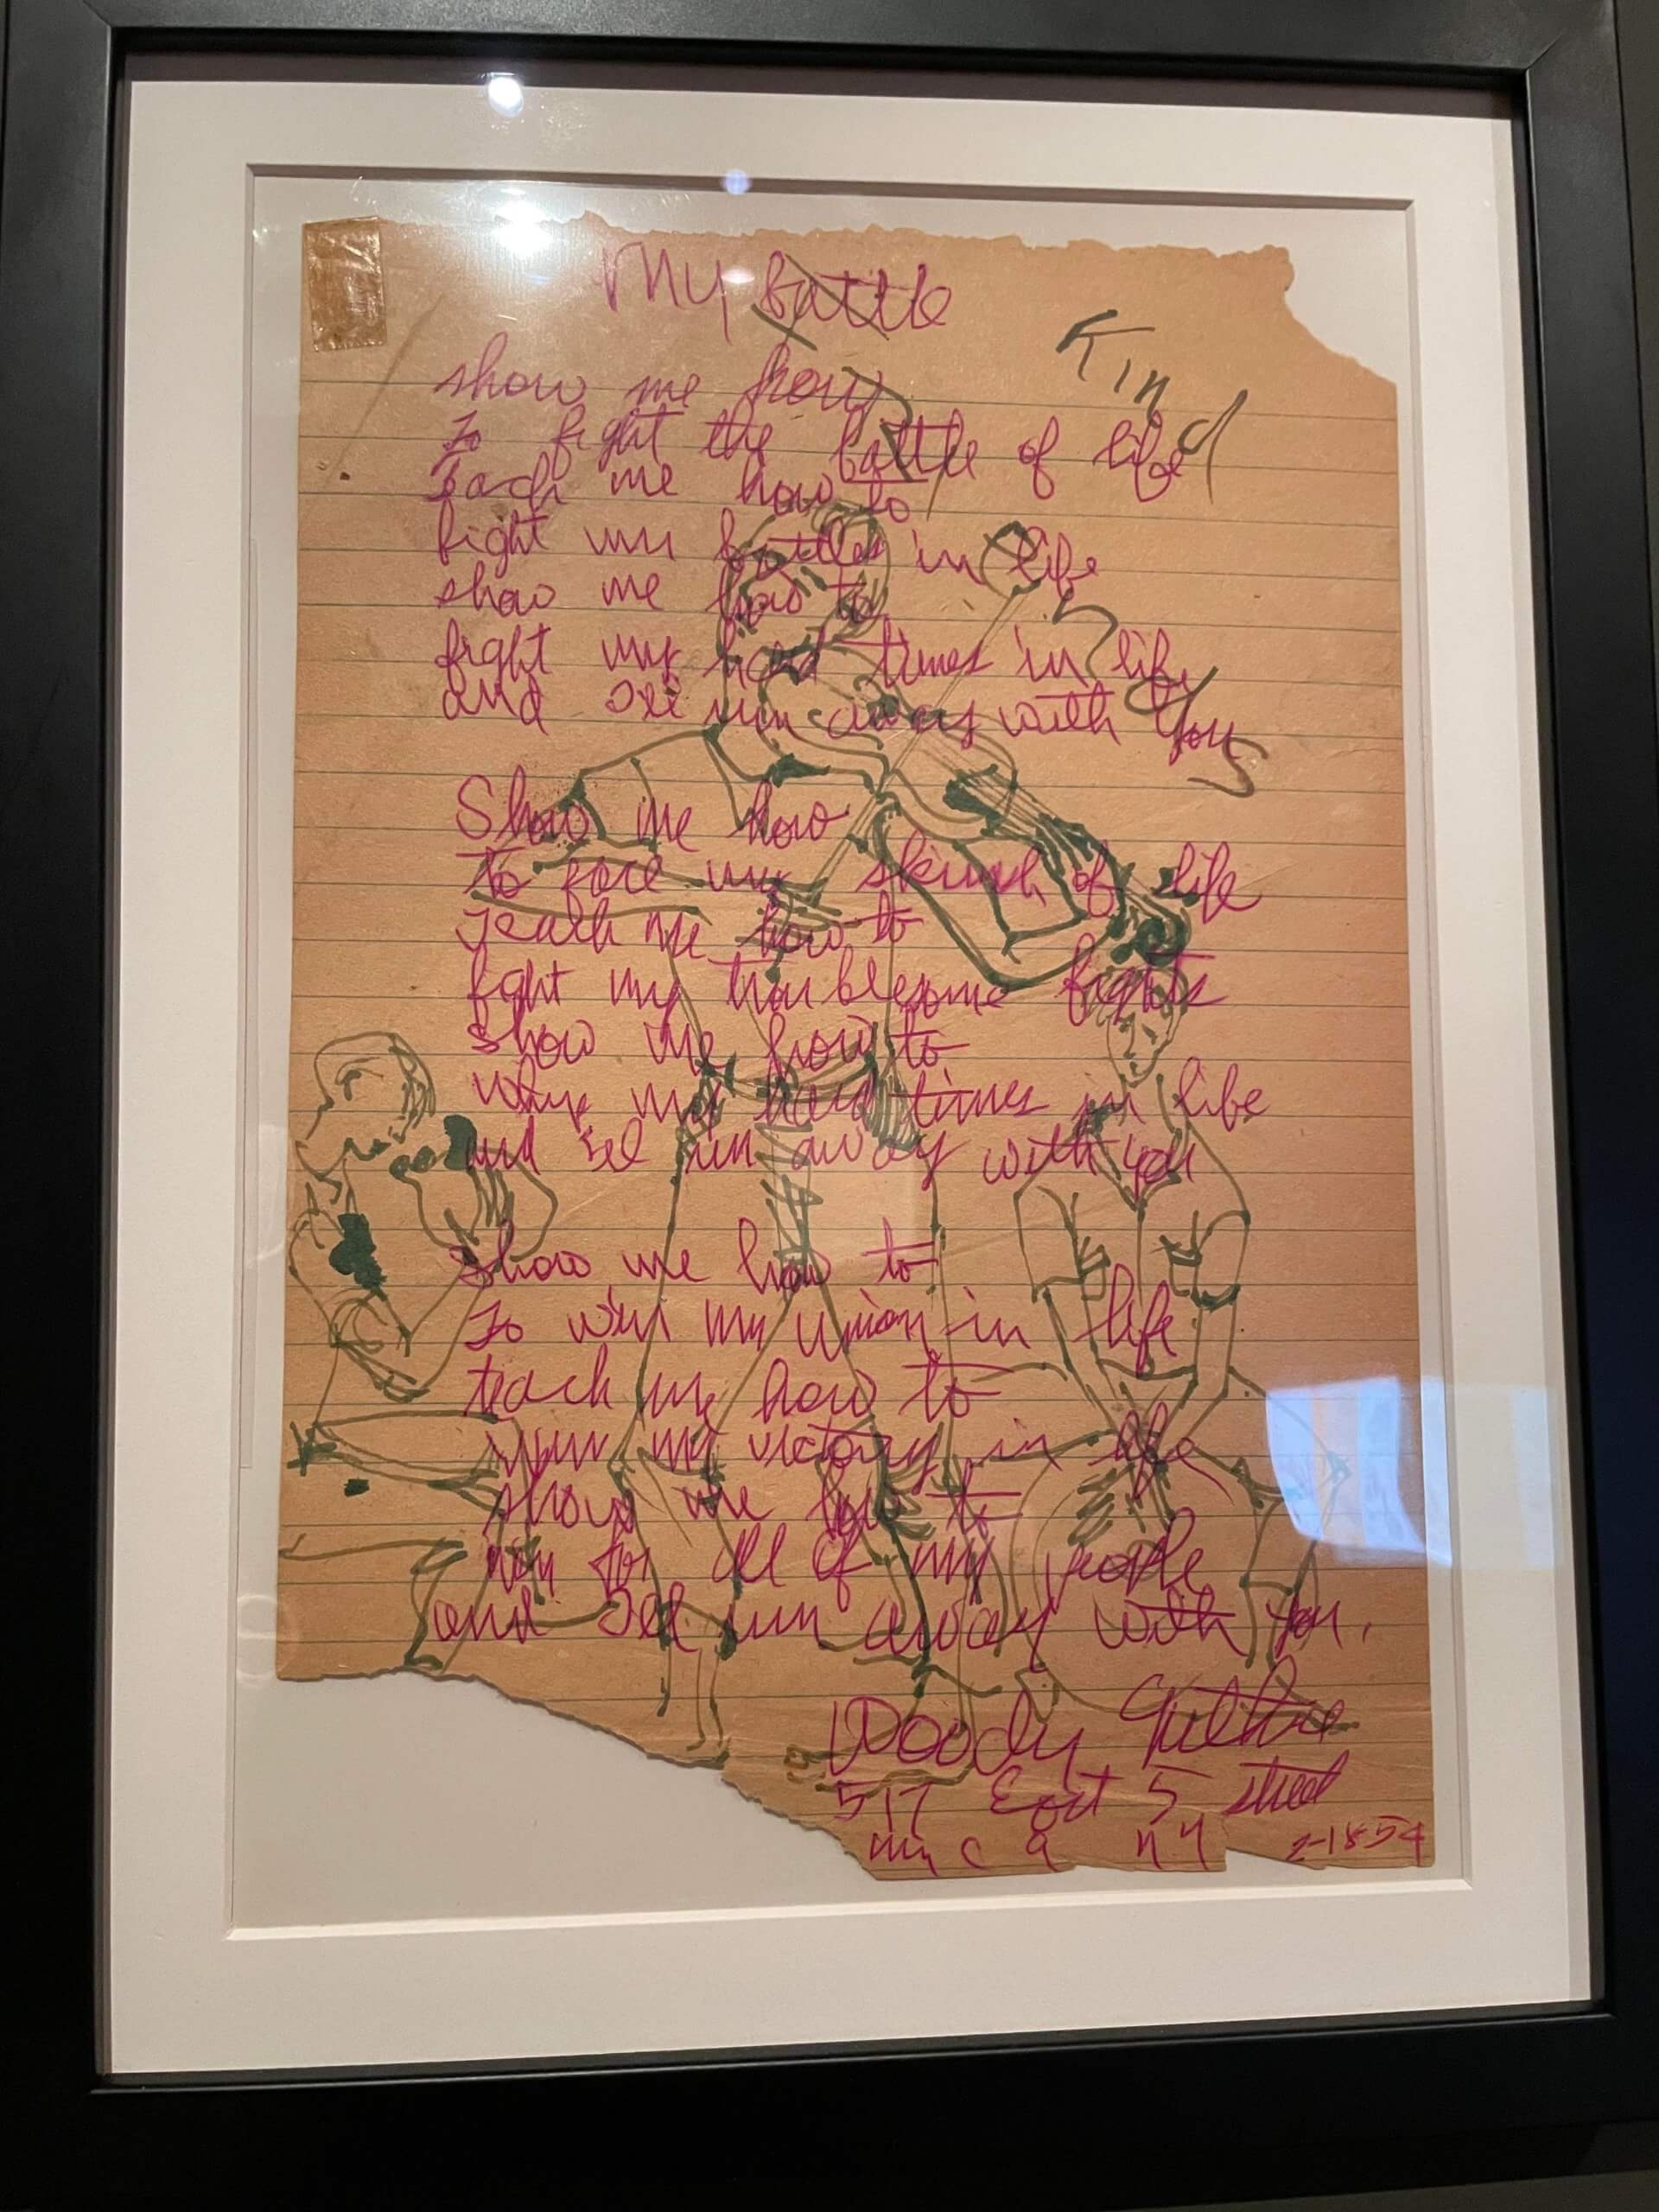 My battle
show me how
To fight the battle of life
Teach me how to
fight my battles in life
show me how to
fight my hard times in life
and Ill run away with you
Show me how
To face my of life
Teach me how to
fght my troublesome fights
show me how to
my hard times in life
and Ill run away with you
Show me how to
To win my union in life
teach me how to
win my victory in life
show me how to
win for all of my people
and Ill run away with you.
Woody Guthrie
517 East 5 street
ny c 9 ny 2-1854
Kindlings